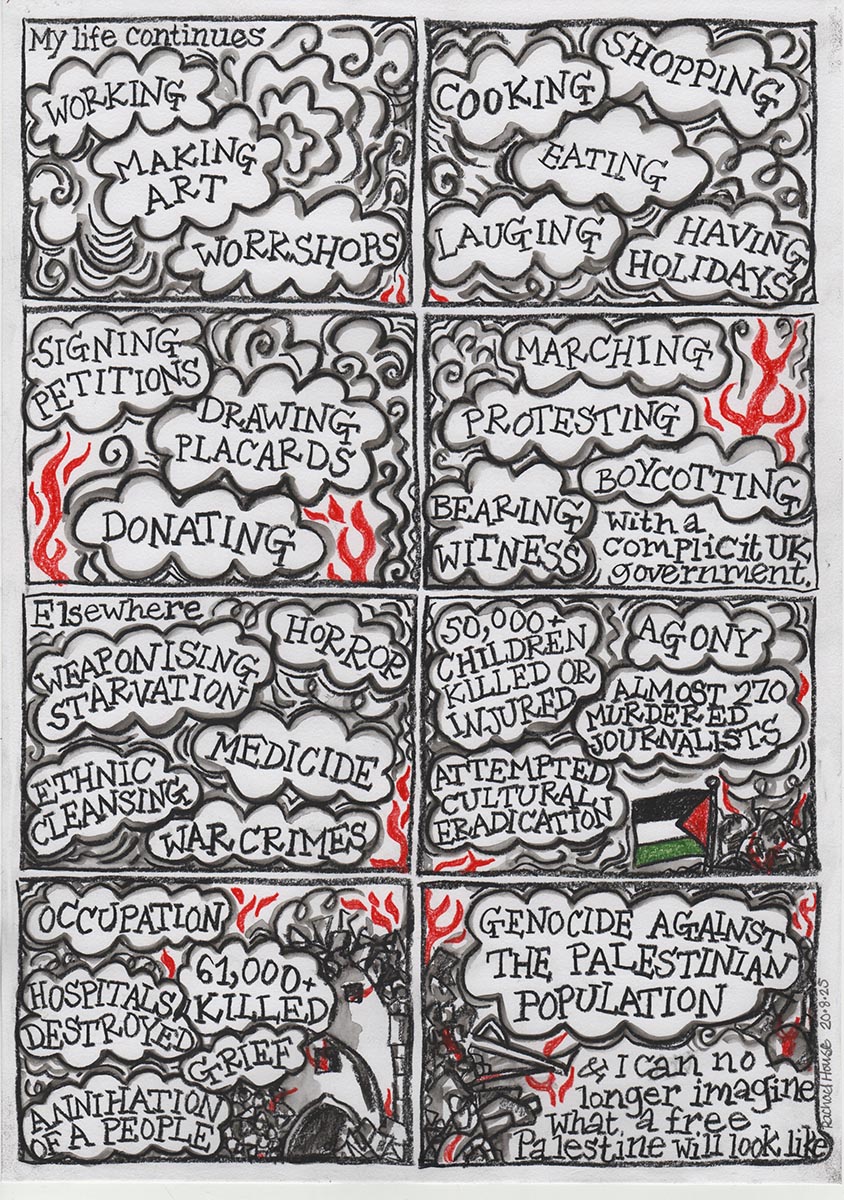 My life continues
WORKING
MAKING
ART
WORKSHOPS
COOKING
SHOPPING
EATING
LAUGING
HAVING
HOLIDAYS
SIGNING
PETITIONS
DRAWING
PLACARDS
DONATING
MARCHING
PROTESTING
BOYCOTTING
BEARING
WITNESS
with a
complicit UK
government.
Elsewhere
HORROR
WEAPONISING
STARVATION
MEDICIDE
ETHNIC
CLEANSING
WAR CRIMES
50,000+
CHILDREN
KILLED OR
INJURED
AGONY
ALMOST 270
MURDERED
JOURNALISTS
ATTEMPTED
CULTURAL
ERADICATION
OCCUPATION
61,000+
KILLED
HOSPITALS
DESTROYED
GRIEF
ANNIHATION
OF A PEOPLE
GENOCIDE AGAINST
THE PALESTINIAN
POPULATION
& I can no
longer imagine
what a free
Palestine will look like
Rachael House 20·8·25